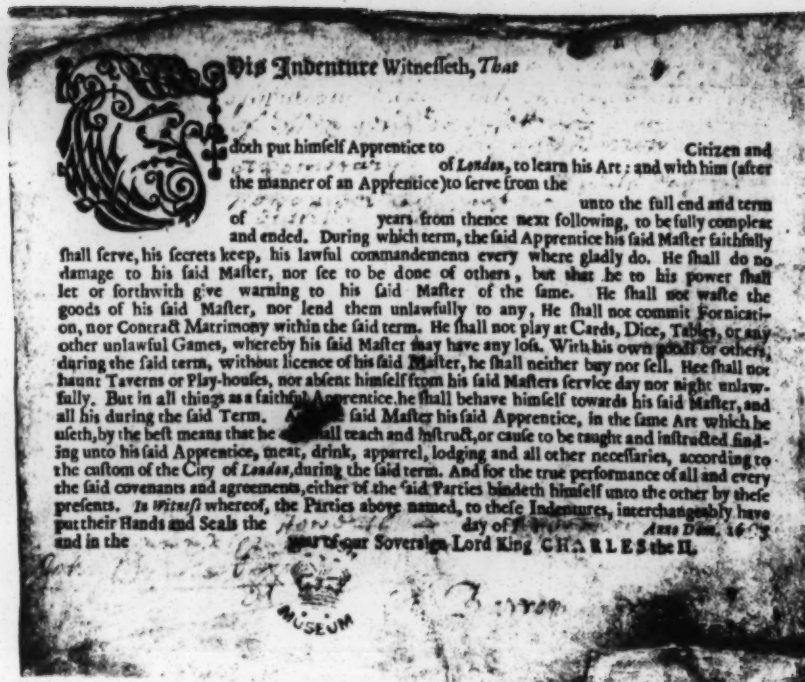 This Indenture Witnesseth, That
doth put himself Apprentice to Citizen and
of London, to learn his Art: and with him (after
the manner of an Apprentice) to serve from the
unto the full end and term
of years from thence next following, to be fully compleat
and ended. During which term, the said Apprentice his said Master faithfully
shall serve, his secrets keep, his lawful commandements every where gladly do. He shall do no
damage to his said Master, nor see to be done of others, but that he to his power shall
let or forthwith give warning to his said Master of the same. He shall not waste the
goods of his said Master, nor lend them unlawfully to any, He shall not commit Fornicati-
on, nor Contract Matrimony within the said term. He shall not play at Cards, Dice, Tables, or any
other unlawful Games, whereby his said Master may have any loss. With his own goods or others,
during the said term, without licence of his said Master, he shall neither buy nor sell. Hee shall not
haunt Taverns or Play-houses, nor absent himself from his said Masters service day nor night unlaw-
fully. But in all things as a faithful Apprentice, he shall behave himself towards his said Master, and
all his during the said Term. said Master his said Apprentice, in the same Art which he
useth, by the best means that he shall teach and instruct, or cause to be taught and instructed find-
ing unto his said Apprentice, meat, drink, apparrel, lodging and all other necessaries, according to
the custom of the City of London, during the said term. And for the true performance of all and every
the said covenants and agreements, either of the said Parties bindeth himself unto the other by these
presents. In Witness whereof, the Parties above named, to these Indentures, interchangeably have
put their Hands and Seals the day of Anno Dom. 16
and in the year of our Soveraign Lord King CHARLES the II.
MUSEUM